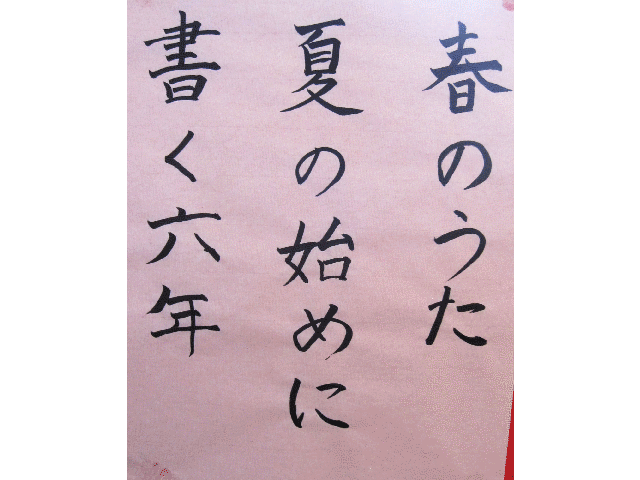 春のうた
夏の始めに
書く六年